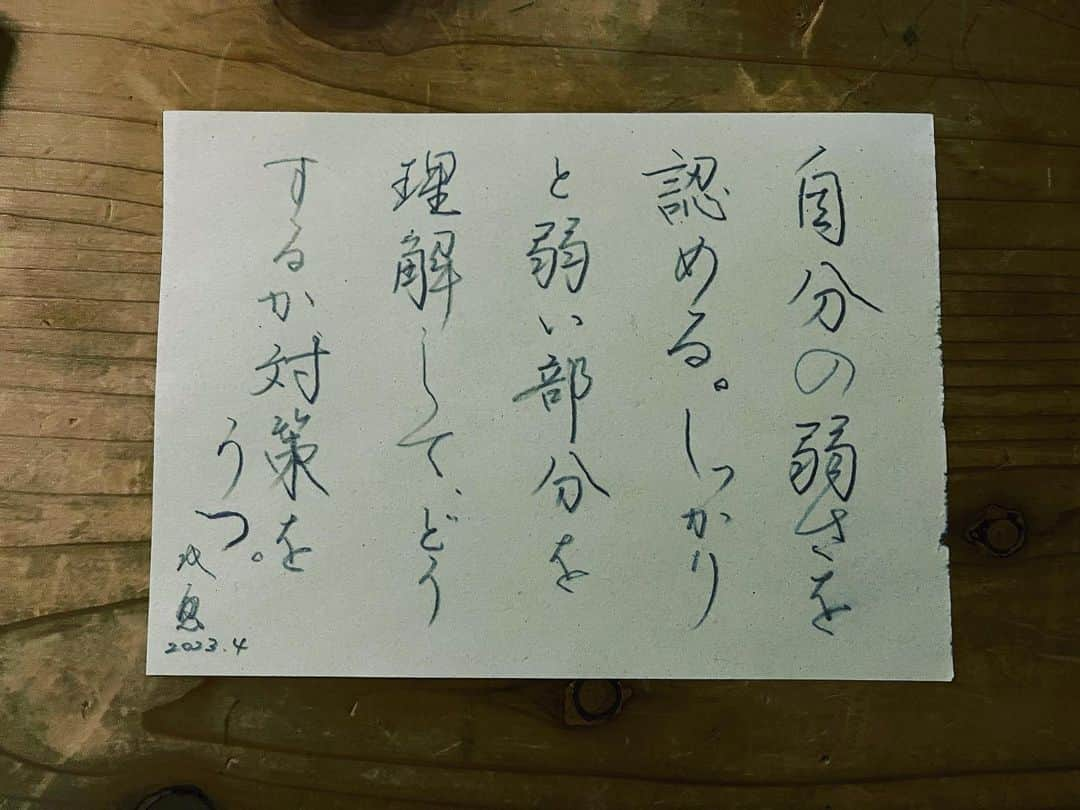 自分の弱さを
認める。しっかり
と弱い部分を
理解して、どう
するか対策を
うつ。
2023.4